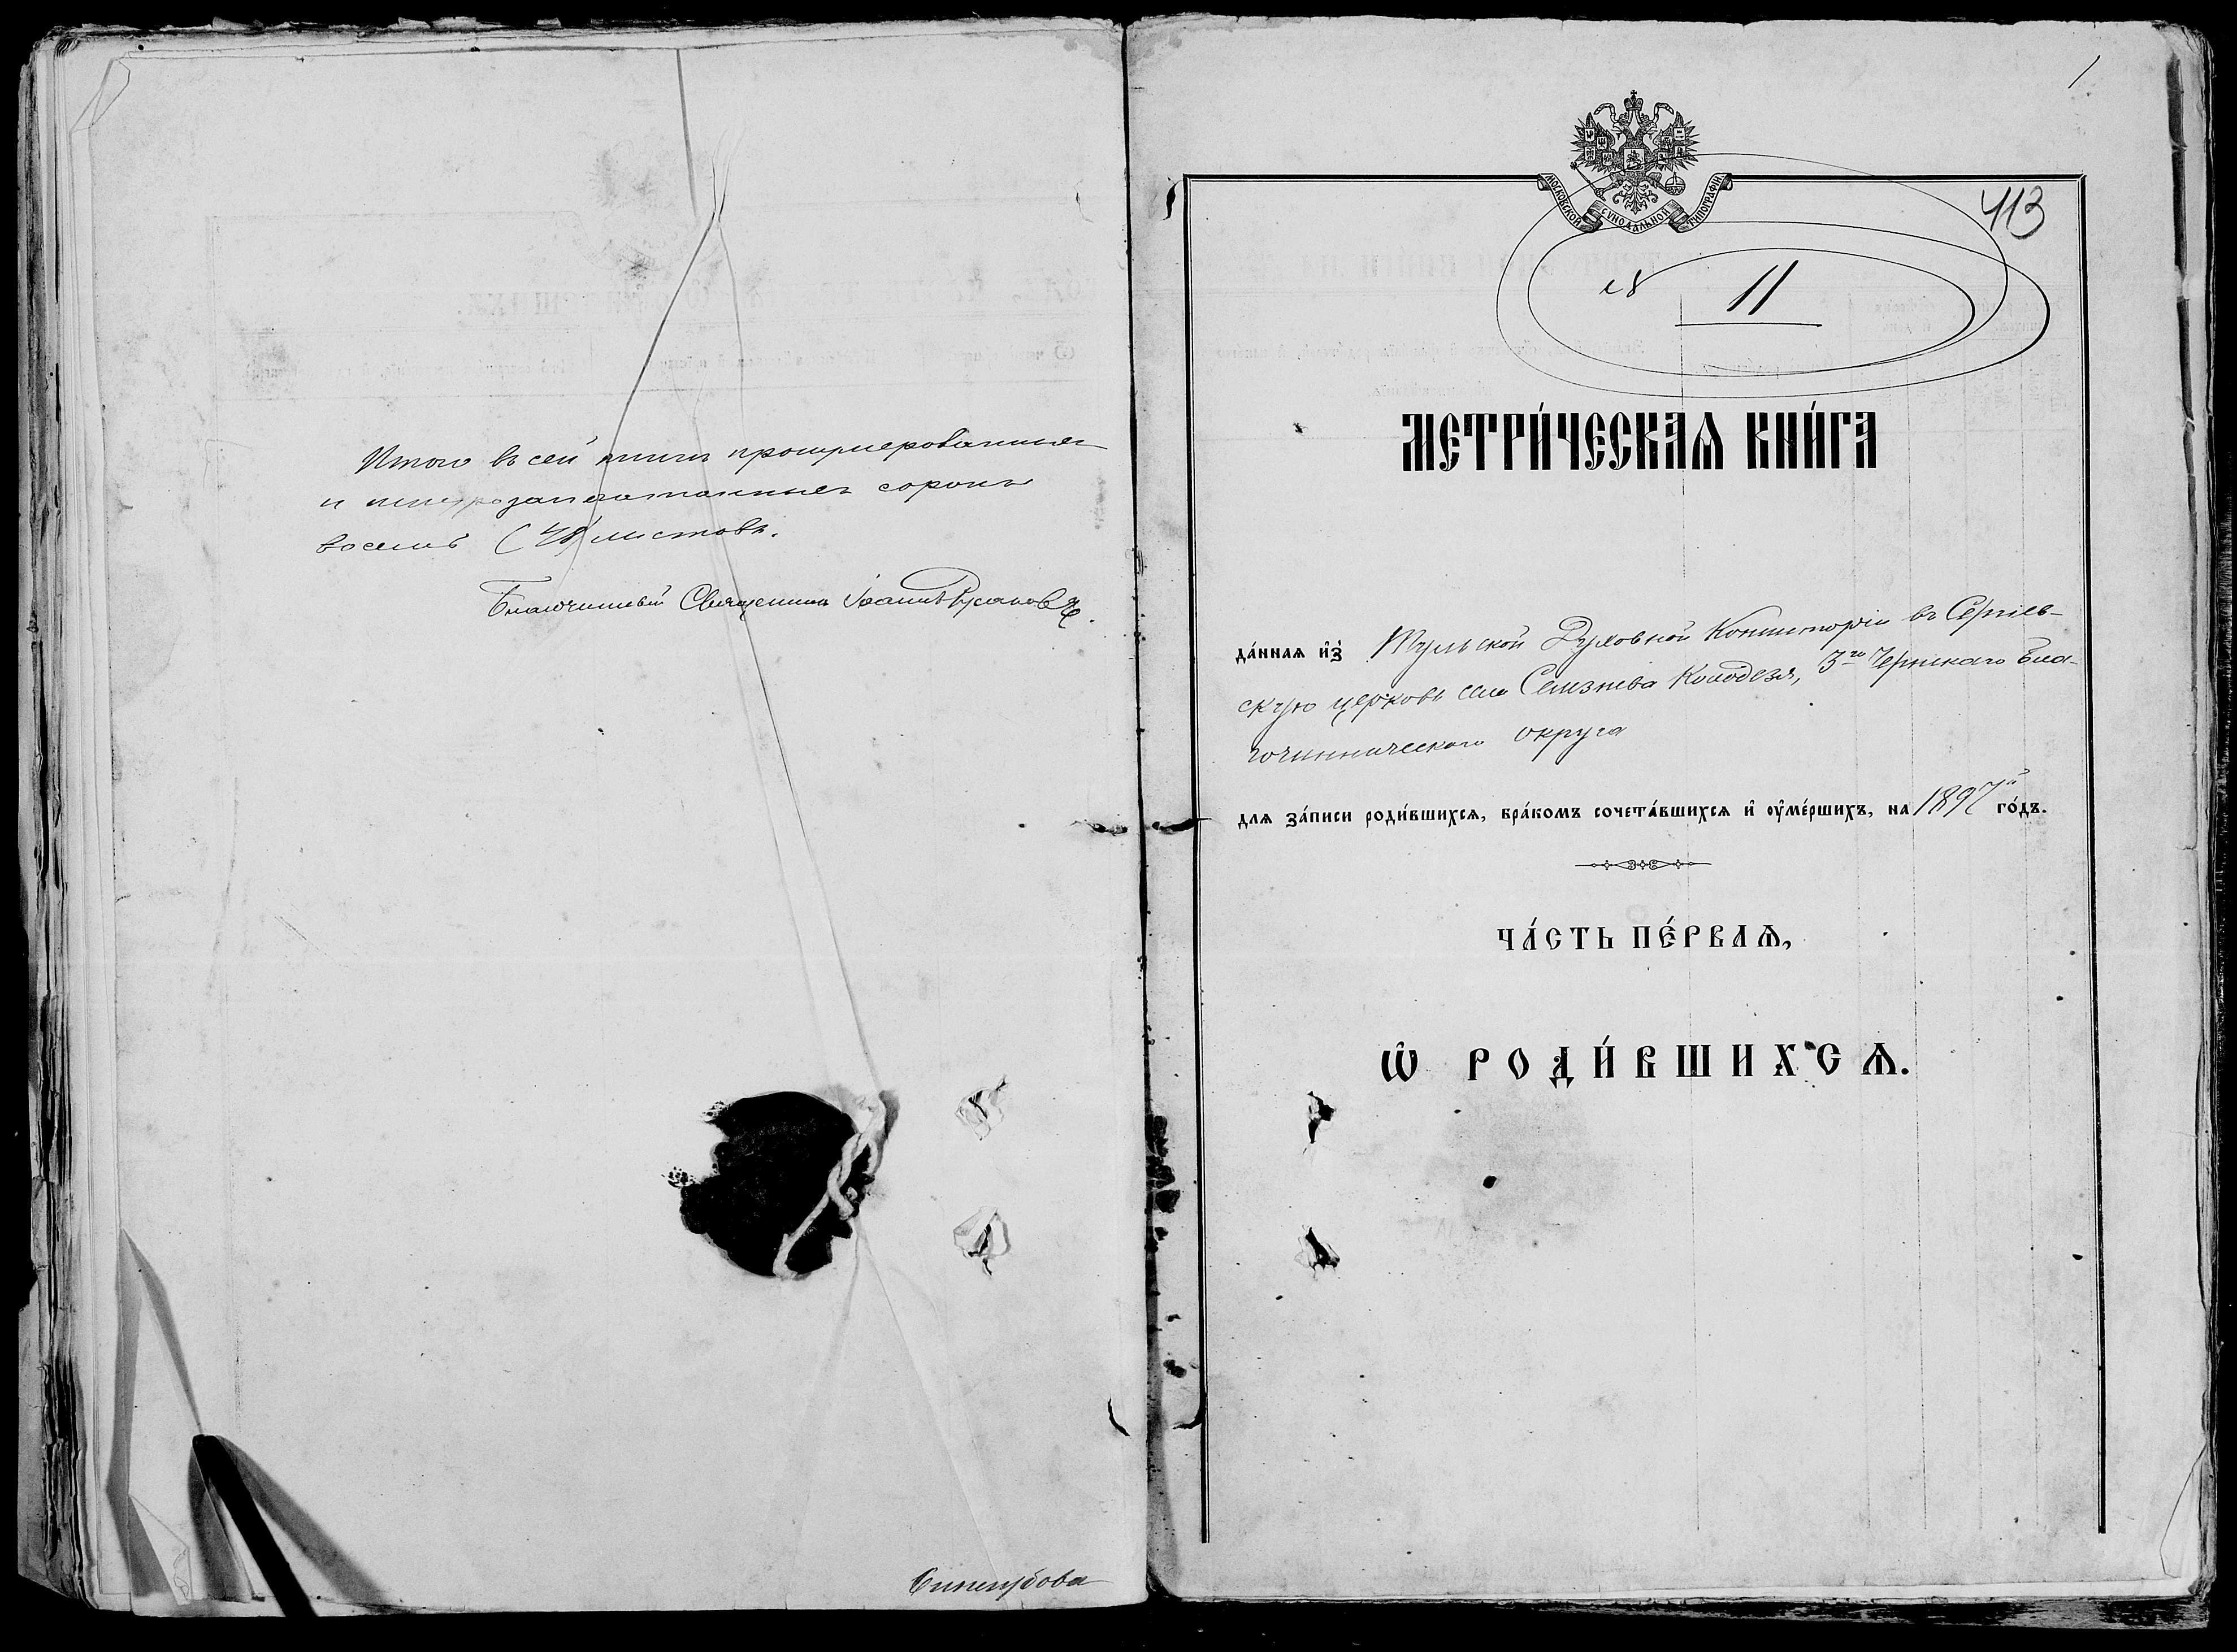 Итого въ сей книгѣ пронумерованныхъ
и шнурозапечатанныхъ сорокъ
восемь (48) листовъ.
Благочинный Священникъ Іоаннъ Русаковъ.
1
МОСКОВСКОЙ СѴНОДАЛЬНОЙ ТИПОГРАФІИ
413
№ 11
МЕТРИ́ЧЕСКАѦ КНИ́ГА
да́ннаѧ и҆з̾ Тульской Духовной Консисторіи въ Сергіев-
скую церковь села Селизнева Колодезя, 3го Чернскаго Бла-
гочинническаго округа
для за́писи роди́вшихсѧ, бра́комъ сочета́вшихсѧ и҆ оу҆ме́ршихъ, на 1897й го́дъ.
ЧА́СТЬ ПЕ́РВАѦ,
Ѡ҆ РОДИ́ВШИХСѦ.